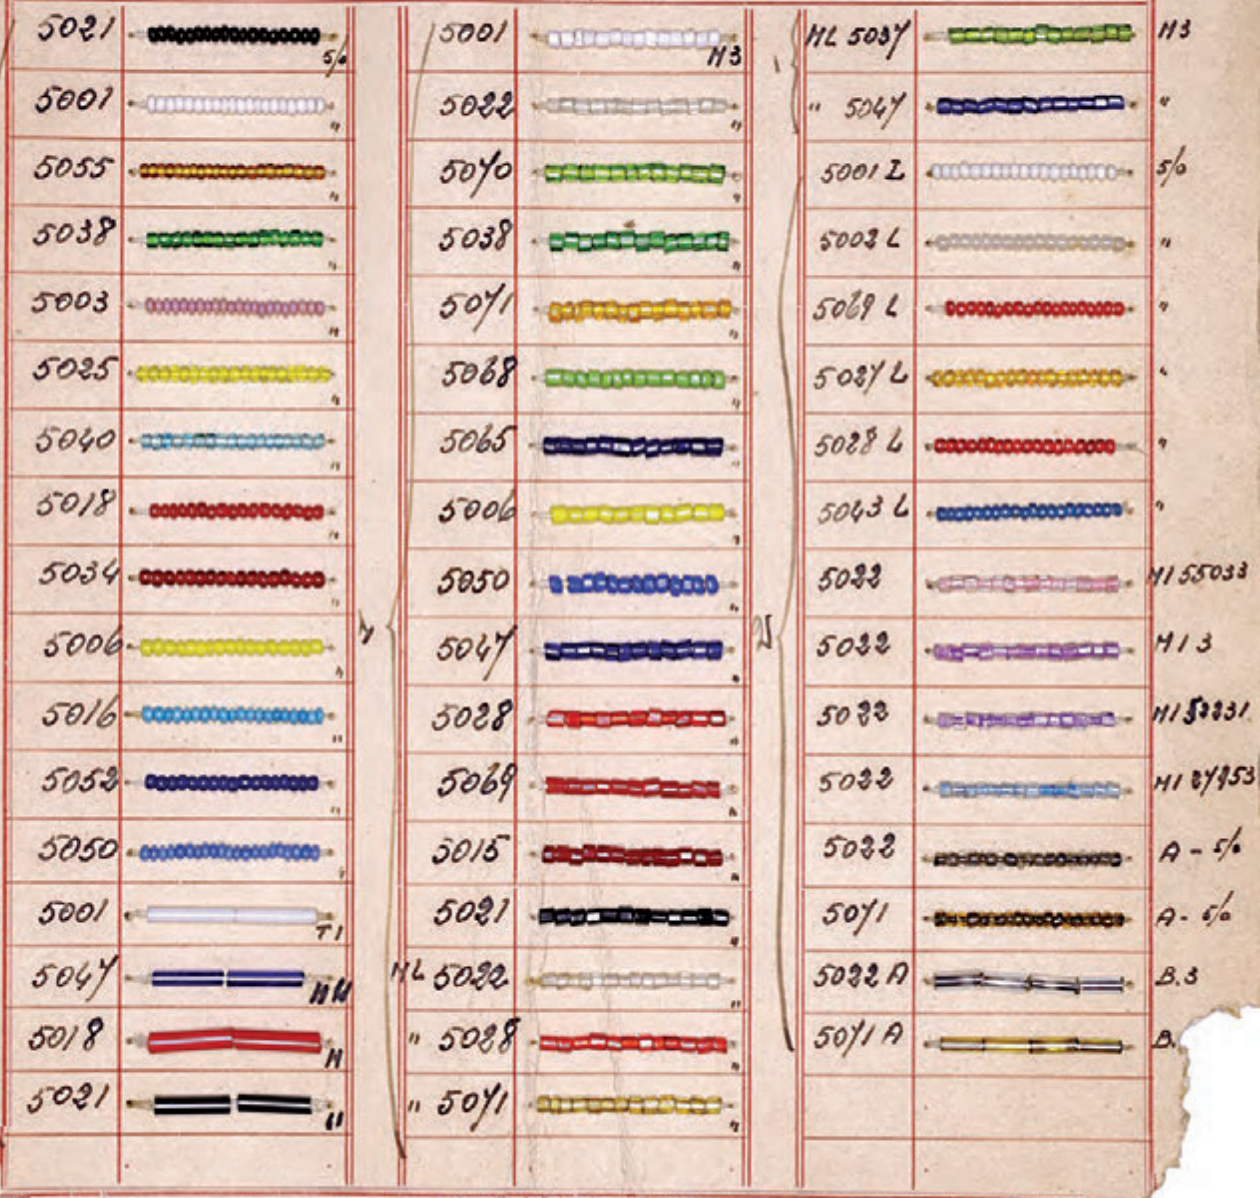 5021 5/0
5001 "
5055 "
5038 "
5003 "
5025 "
5040 "
5018 "
5034 "
5006 "
5016 "
5052 "
5050 "
5001 T1
5047
5018 H
5021 "
5001 M3
5022 "
5070 "
5038 "
5071 "
5068 "
5065 "
5006 "
5050 "
5047 "
5028 "
5069 "
5015 "
5021 "
ML 5022 "
" 5028 "
" 5071 "
ML 5037 M3
" 5047 "
5001 L 5/0
5002 L "
5069 L "
5027 L "
5028 L "
5043 L "
5022 M1 55033
5022 M13
5022
5022
5022 A - 5/0
5071 A - 5/0
5022 A B.3
5071 A B.